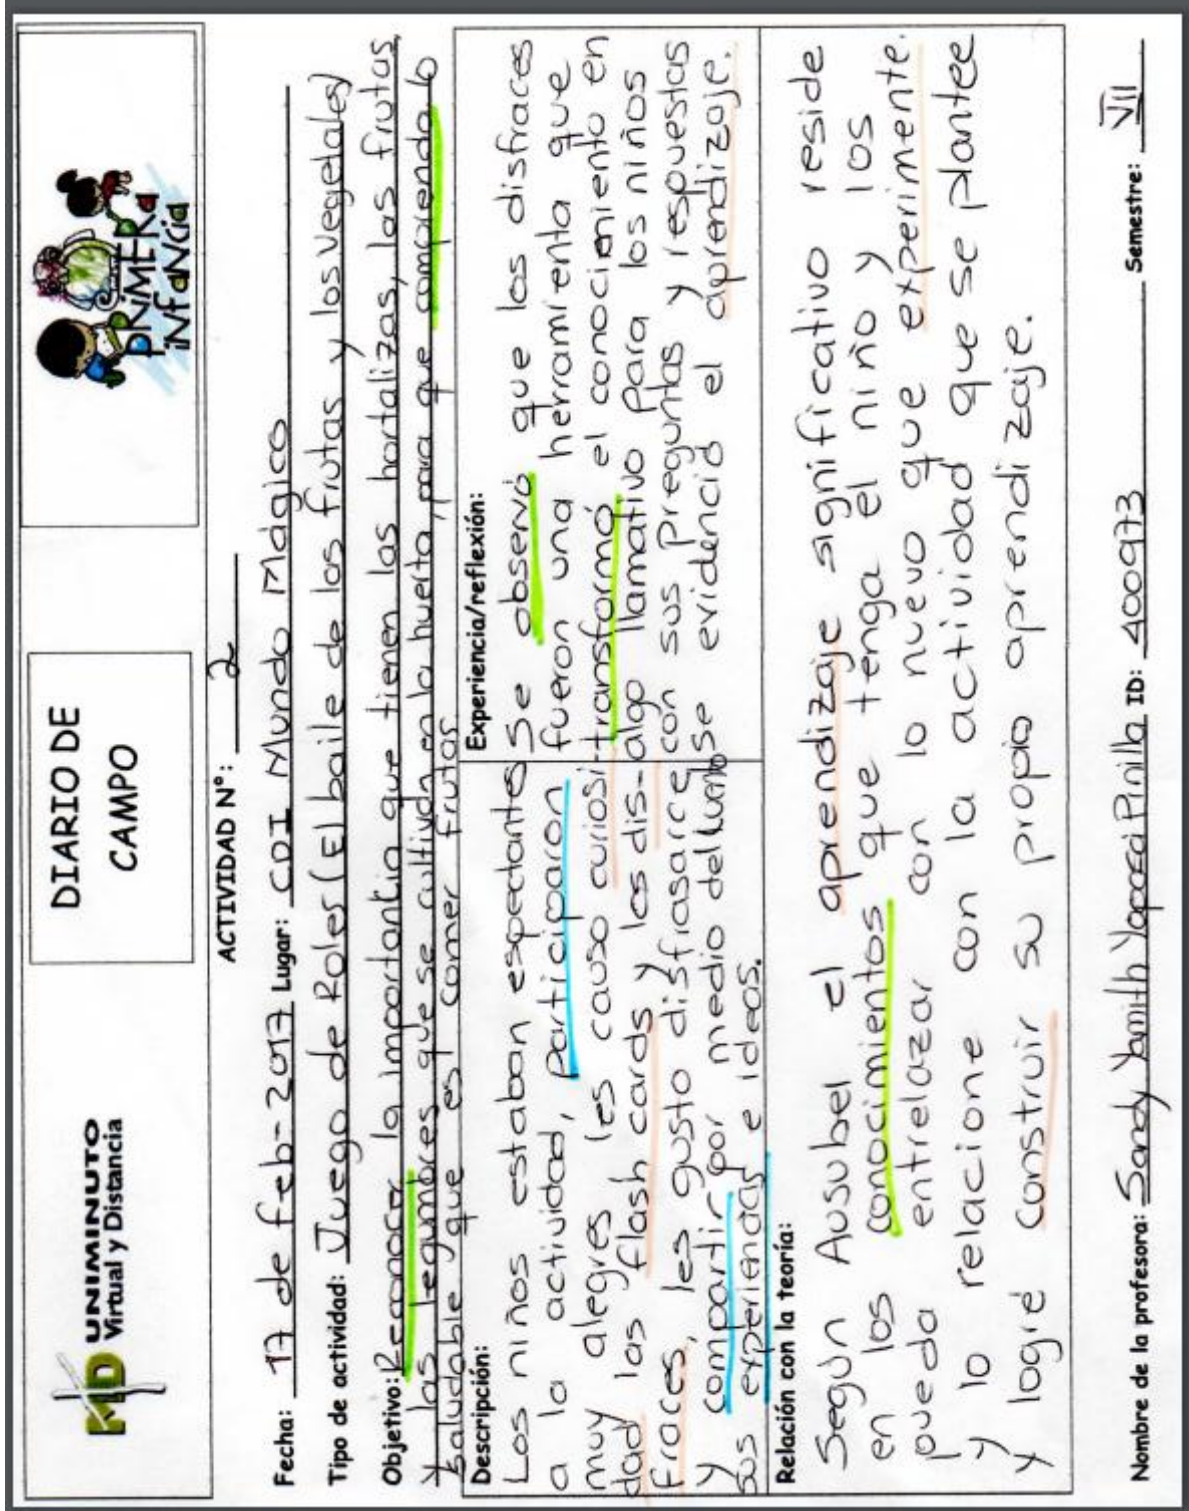 UNIMINUTO
Virtual y Distancia
DIARIO DE
CAMPO
PRIMERA
iNfaNcia
ACTIVIDAD N°: 2
Fecha: 17 de feb-2017 Lugar: CDI Mundo Mágico
Tipo de actividad: Juego de Roles (El baile de los frutas y los vegetales)
Objetivo: Reconocer la importantia que tienen las hortalizas, las frutas
y las legumbres que se cultivan en la huerta, para que comprenda lo
saludable que es comer frutas
Descripción:
Los niños estaban espectantes
a la actividad, participaron
muy alegres les causo curiosi-
dad las flash cards y los dis-
fraces, les gusto disfrasarce
y compartir por medio del cuento
sus experiencias e ideas.
Experiencia/reflexión:
Se observó que los disfraces
fueron una herramienta que
transformó el conocimiento en
algo llamativo para los niños
con sus preguntas y respuestas
se evidenció el aprendizaje.
Relación con la teoría:
Según Ausubel el aprendizaje significativo reside
en los conocimientos que tenga el niño y los
pueda entrelazar con lo nuevo que experimente.
y lo relacione con la actividad que se plantee
y logré construir su propio aprendizaje.
Nombre de la profesora: Sandy Yamith Yaposa Pinilla ID: 400973 Semestre: VII